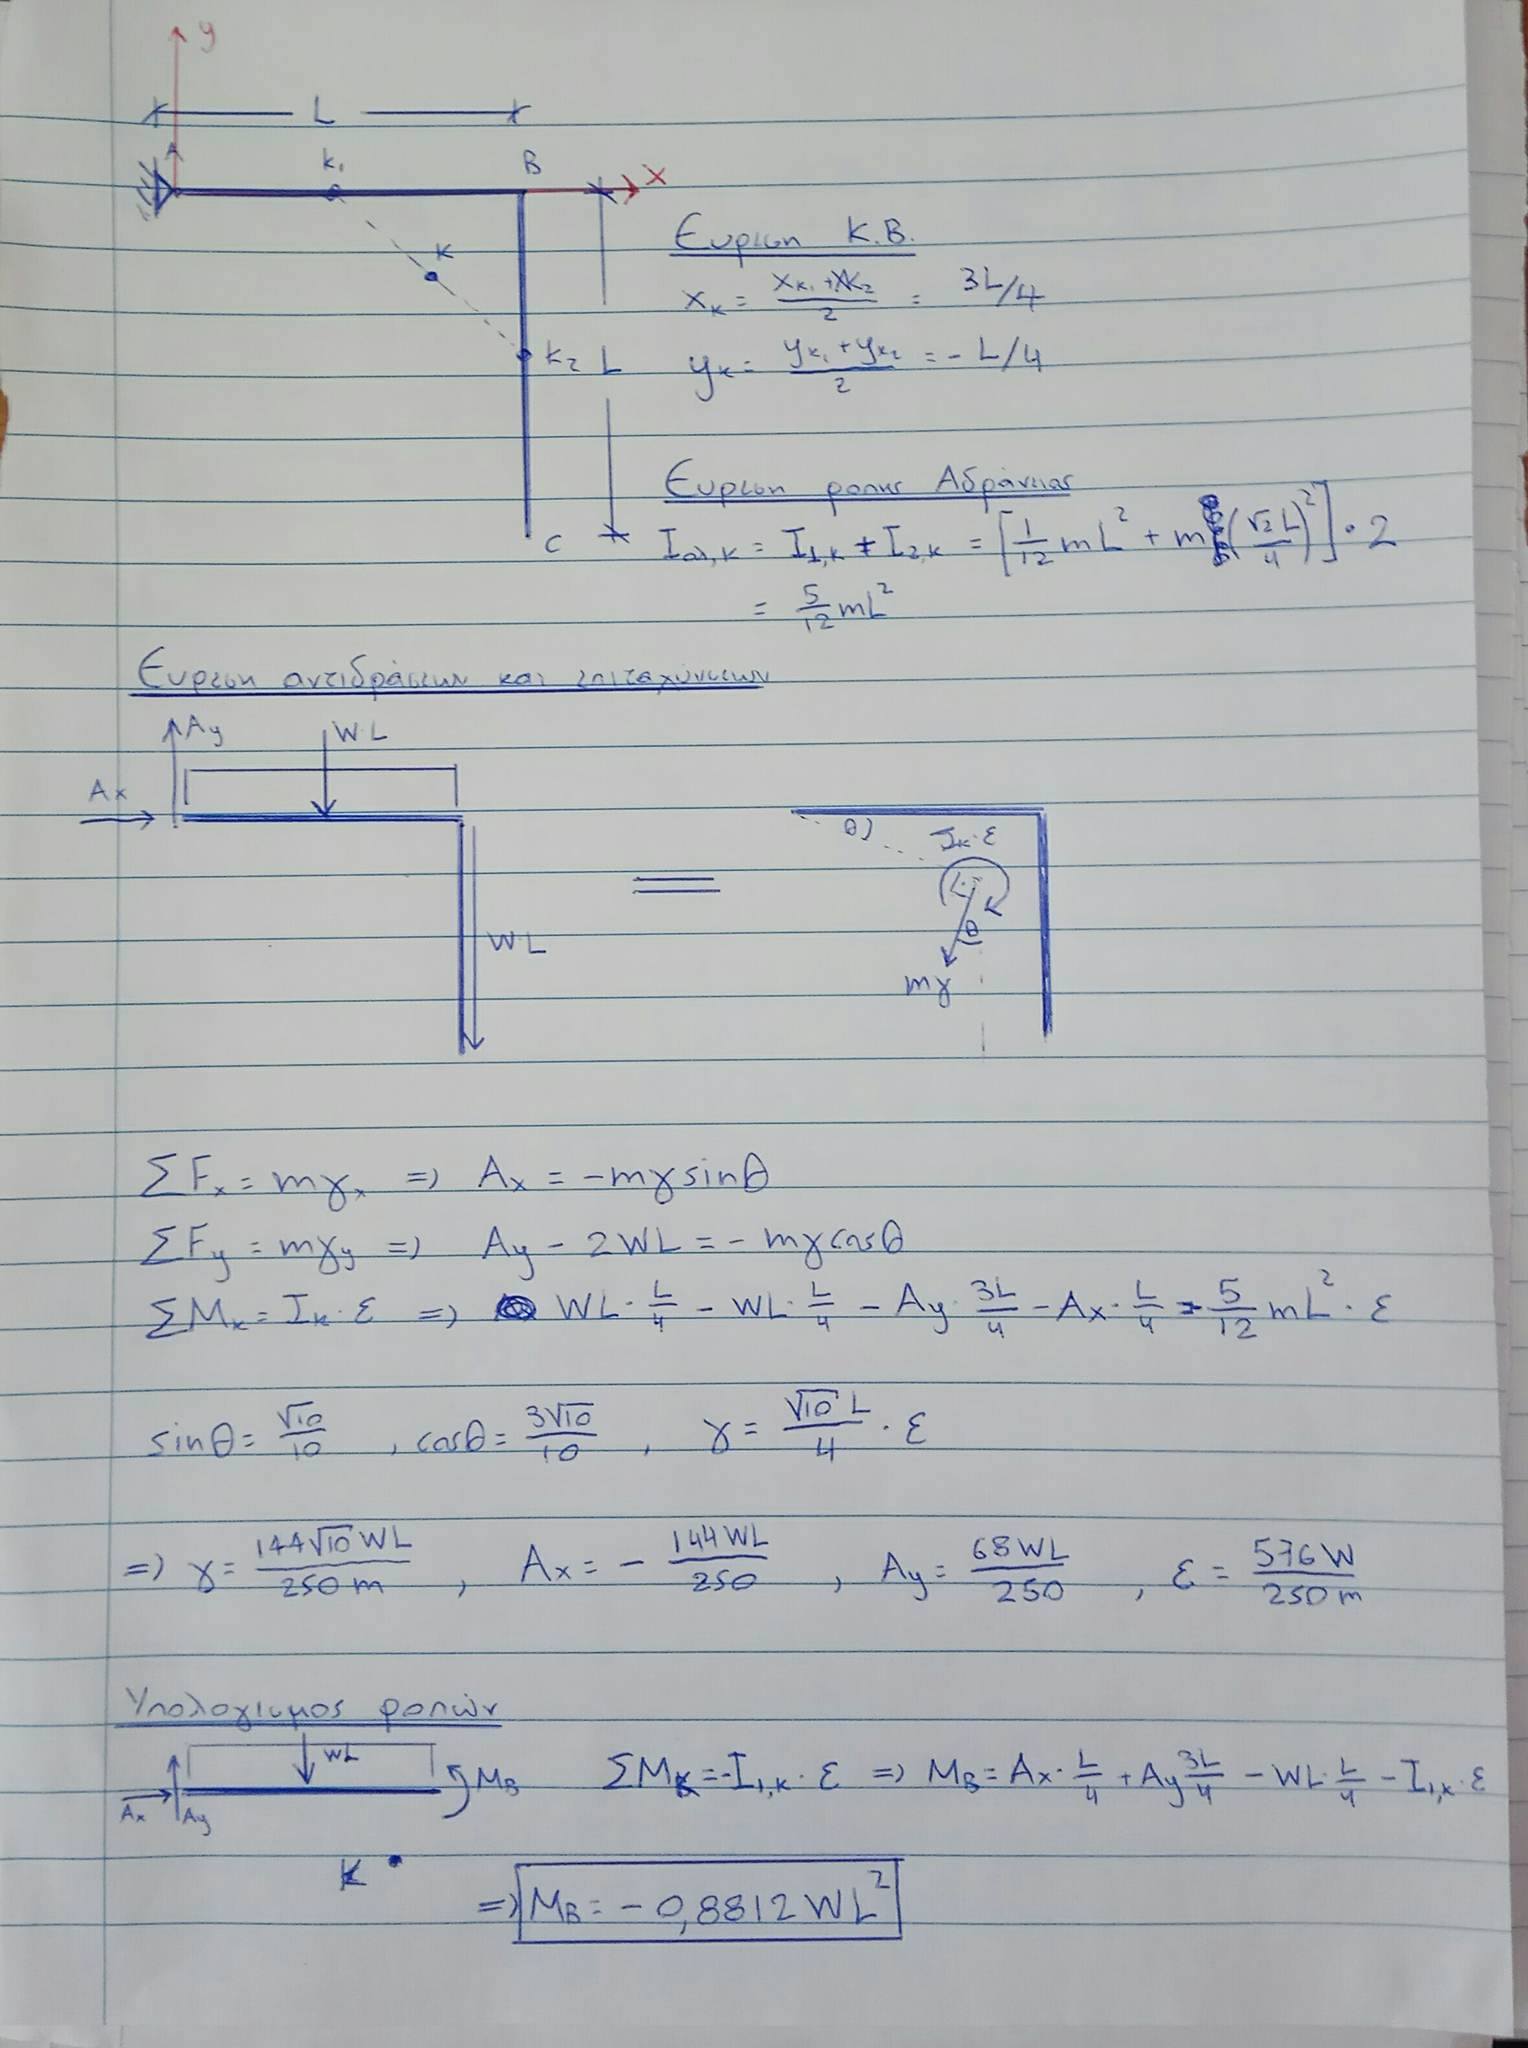 y
L
A
K₁
B
x
K
K₂
L
C
Ευρεση Κ.Β.
Xₖ = (Xₖ₁ + Xₖ₂)/2 = 3L/4
yₖ = (yₖ₁ + yₖ₂)/2 = - L/4
Ευρεση ροπης Αδράνειας
Iολ,κ = I₁,κ + I₂,κ = [1/12 mL² + m (√2 L/4)²] · 2
= 5/12 mL²
Ευρεση αντιδράσεων και επιταχύνσεων
Ay
W·L
Ax
WL
=
θ
Iκ·ε
θ
mγ
ΣFx = mγx => Ax = -mγsinθ
ΣFy = mγy => Ay - 2WL = - mγcosθ
ΣMκ = Iκ·ε => WL·L/4 - WL·L/4 - Ay·3L/4 - Ax·L/4 = 5/12 mL²·ε
sinθ = √10/10 , cosθ = 3√10/10 , γ = √10 L/4 · ε
=> γ = 144√10 WL/250m , Ax = - 144WL/250 , Ay = 68WL/250 , ε = 576W/250m
Υπολογισμος ροπών
WL
MB
Ax
Ay
K
ΣMκ = -I₁,κ·ε => MB = Ax·L/4 + Ay 3L/4 - WL·L/4 - I₁,κ·ε
=> MB = - 0,8812WL²